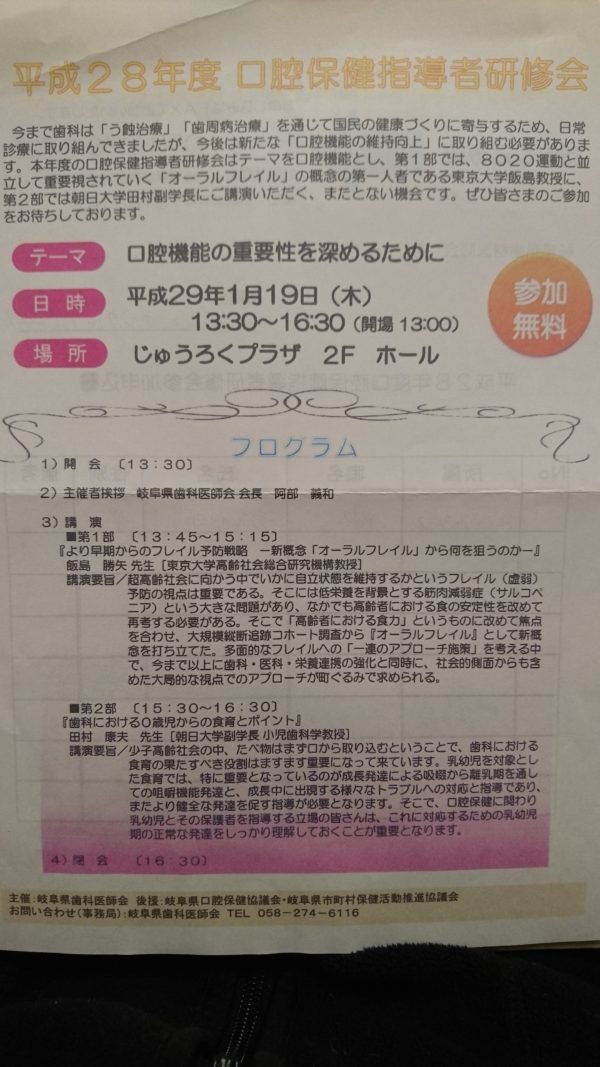 平成28年度 口腔保健指導者研修会
今まで歯科は「う蝕治療」「歯周病治療」を通じて国民の健康づくりに寄与するため、日常
診療に取り組んできましたが、今後は新たな「口腔機能の維持向上」に取り組む必要がありま
す。本年度の口腔保健指導者研修会はテーマを口腔機能とし、第1部では、8020運動と並
立して重要視されていく「オーラルフレイル」の概念の第一人者である東京大学飯島教授に、
第2部では朝日大学田村副学長にご講演いただく、またとない機会です。ぜひ皆さまのご参加
をお待ちしております。
テーマ 口腔機能の重要性を深めるために
日時 平成29年1月19日(木)
13:30〜16:30(開場 13:00)
参加
無料
場所 じゅうろくプラザ 2F ホール
プログラム
1)開 会 〔13:30〕
2)主催者挨拶 岐阜県歯科医師会 会長 阿部 義和
3)講 演
■第1部 〔13:45〜15:15〕
『より早期からのフレイル予防戦略 ー新概念「オーラルフレイル」から何を狙うのかー』
飯島 勝矢 先生[東京大学高齢社会総合研究機構教授]
講演要旨/超高齢社会に向かう中でいかに自立状態を維持するかというフレイル(虚弱)
予防の視点は重要である。そこには低栄養を背景とする筋肉減弱症(サルコペ
ニア)という大きな問題があり、なかでも高齢者における食の安定性を改めて
再考する必要がある。そこで「高齢者における食力」というものに改めて焦点
を合わせ、大規模縦断追跡コホート調査から『オーラルフレイル』として新概
念を打ち立てた。多面的なフレイルへの「一連のアプローチ施策」を考える中
で、今まで以上に歯科・医科・栄養連携の強化と同時に、社会的側面からも含
めた大局的な視点でのアプローチが町ぐるみで求められる。
■第2部 〔15:30〜16:30〕
『歯科における0歳児からの食育とポイント』
田村 康夫 先生[朝日大学副学長 小児歯科学教授]
講演要旨/少子高齢社会の中、たべ物はまず口から取り込むということで、歯科における
食育の果たすべき役割はますます重要になって来ています。乳幼児を対象とし
た食育では、特に重要となっているのが成長発達による吸啜から離乳期を通し
ての咀嚼機能発達と、成長中に出現する様々なトラブルへの対応と指導であり、
またより健全な発達を促す指導が必要となります。そこで、口腔保健に関わり
乳幼児とその保護者を指導する立場の皆さんは、これに対応するための乳幼児
期の正常な発達をしっかり理解しておくことが重要となります。
4)閉 会 〔16:30〕
主催:岐阜県歯科医師会 後援:岐阜県口腔保健協議会・岐阜県市町村保健活動推進協議会
お問い合わせ(事務局):岐阜県歯科医師会 TEL 058-274-6116